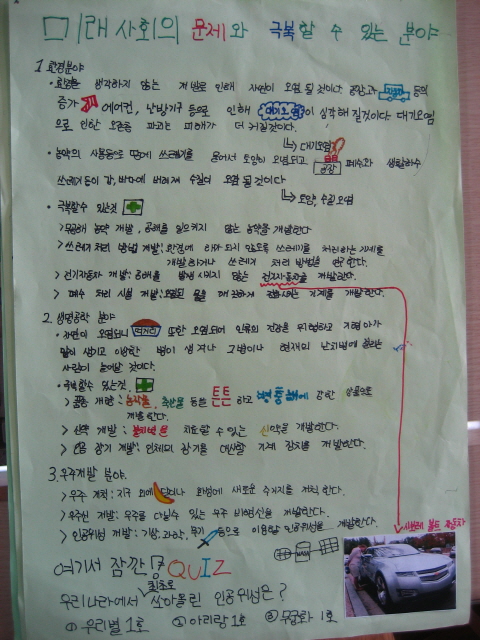 미래 사회의 문제와 극복할 수 있는 분야
1. 환경분야
• 환경을 생각하지 않는 개발로 인해 자연이 오염 될것이다. 공장과 자동차 등의
증가 에어컨, 난방기구 등으로 인해 대기오염이 심각해 질것이다. 대기오염
으로 인한 오존층 파괴는 피해가 더 커질것이다.
↳ 대기오염
• 농약의 사용등으로 땅에 쓰레기를 묻어서 토양이 오염되고 공장 폐수와 생활하수
쓰레기 등이 강, 바다에 버려져 수질이 오염 될것이다.
↳ 토양, 수질 오염
• 극복할수 있는것
> 무공해 농약 개발, 공해를 일으키지 않는 농약을 개발한다.
> 쓰레기 처리 방법 개발: 환경에 해가 되지 않도록 쓰레기를 처리하는 기계를
개발하거나 쓰레기 처리 방법을 연구한다.
> 전기자동차 개발: 공해를 발생시키지 않는 전기자동차를 개발한다.
> 폐수 처리 시설 개발: 오염된 물을 깨끗하게 기계를 개발한다.
2. 생명공학 분야
• 자연이 오염되니 먹거리 또한 오염되어 인류의 건강을 위협하고 기형아가
많이 생기고 이상한 병이 생겨나 그병이나 현재의 난치병에 걸리는
사람이 늘어날 것이다.
• 극복할수 있는것.
> 품종 개량: 농작물, 축산물 등을 튼튼하고 병충해에 강한 상품으로
개발한다.
> 신약 개발: 불치병을 치료할 수 있는 신약을 개발한다.
> 인공 장기 개발: 인체의 장기를 대신할 기계 장치를 개발한다.
3. 우주개발 분야.
> 우주 개척: 지구 외에 달이나 화성에 새로운 주거지를 개척한다.
> 우주선 개발: 우주를 다닐수 있는 우주 비행선을 개발한다.
> 인공위성 개발: 기상, 과학, 무기 등으로 이용할 인공위성을 개발한다.
시보레 볼트 자동차
여기서 잠깐! QUIZ
최초로
우리나라에서 쏘아올린 인공위성은?
① 우리별 1호 ② 아리랑 1호 ③ 무궁화 1호